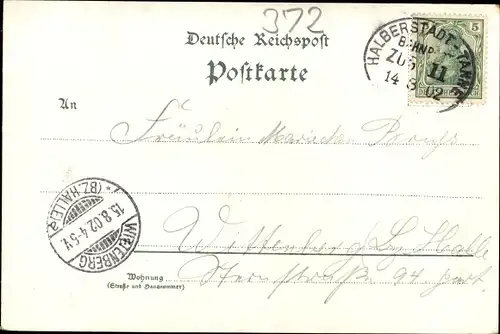 372
Deutsche Reichspost
Postkarte
HALBERSTADT-TANNE
BAHNPOST
ZUG 11
14 8 02
5
An
Fräulein
WITTENBERG
15.8.02 4-5V.
* (BZ. HALLE) a
Wittenberg Bz Halle
Wohnung
(Straße und Hausnummer)
Sternstraße 94. part.